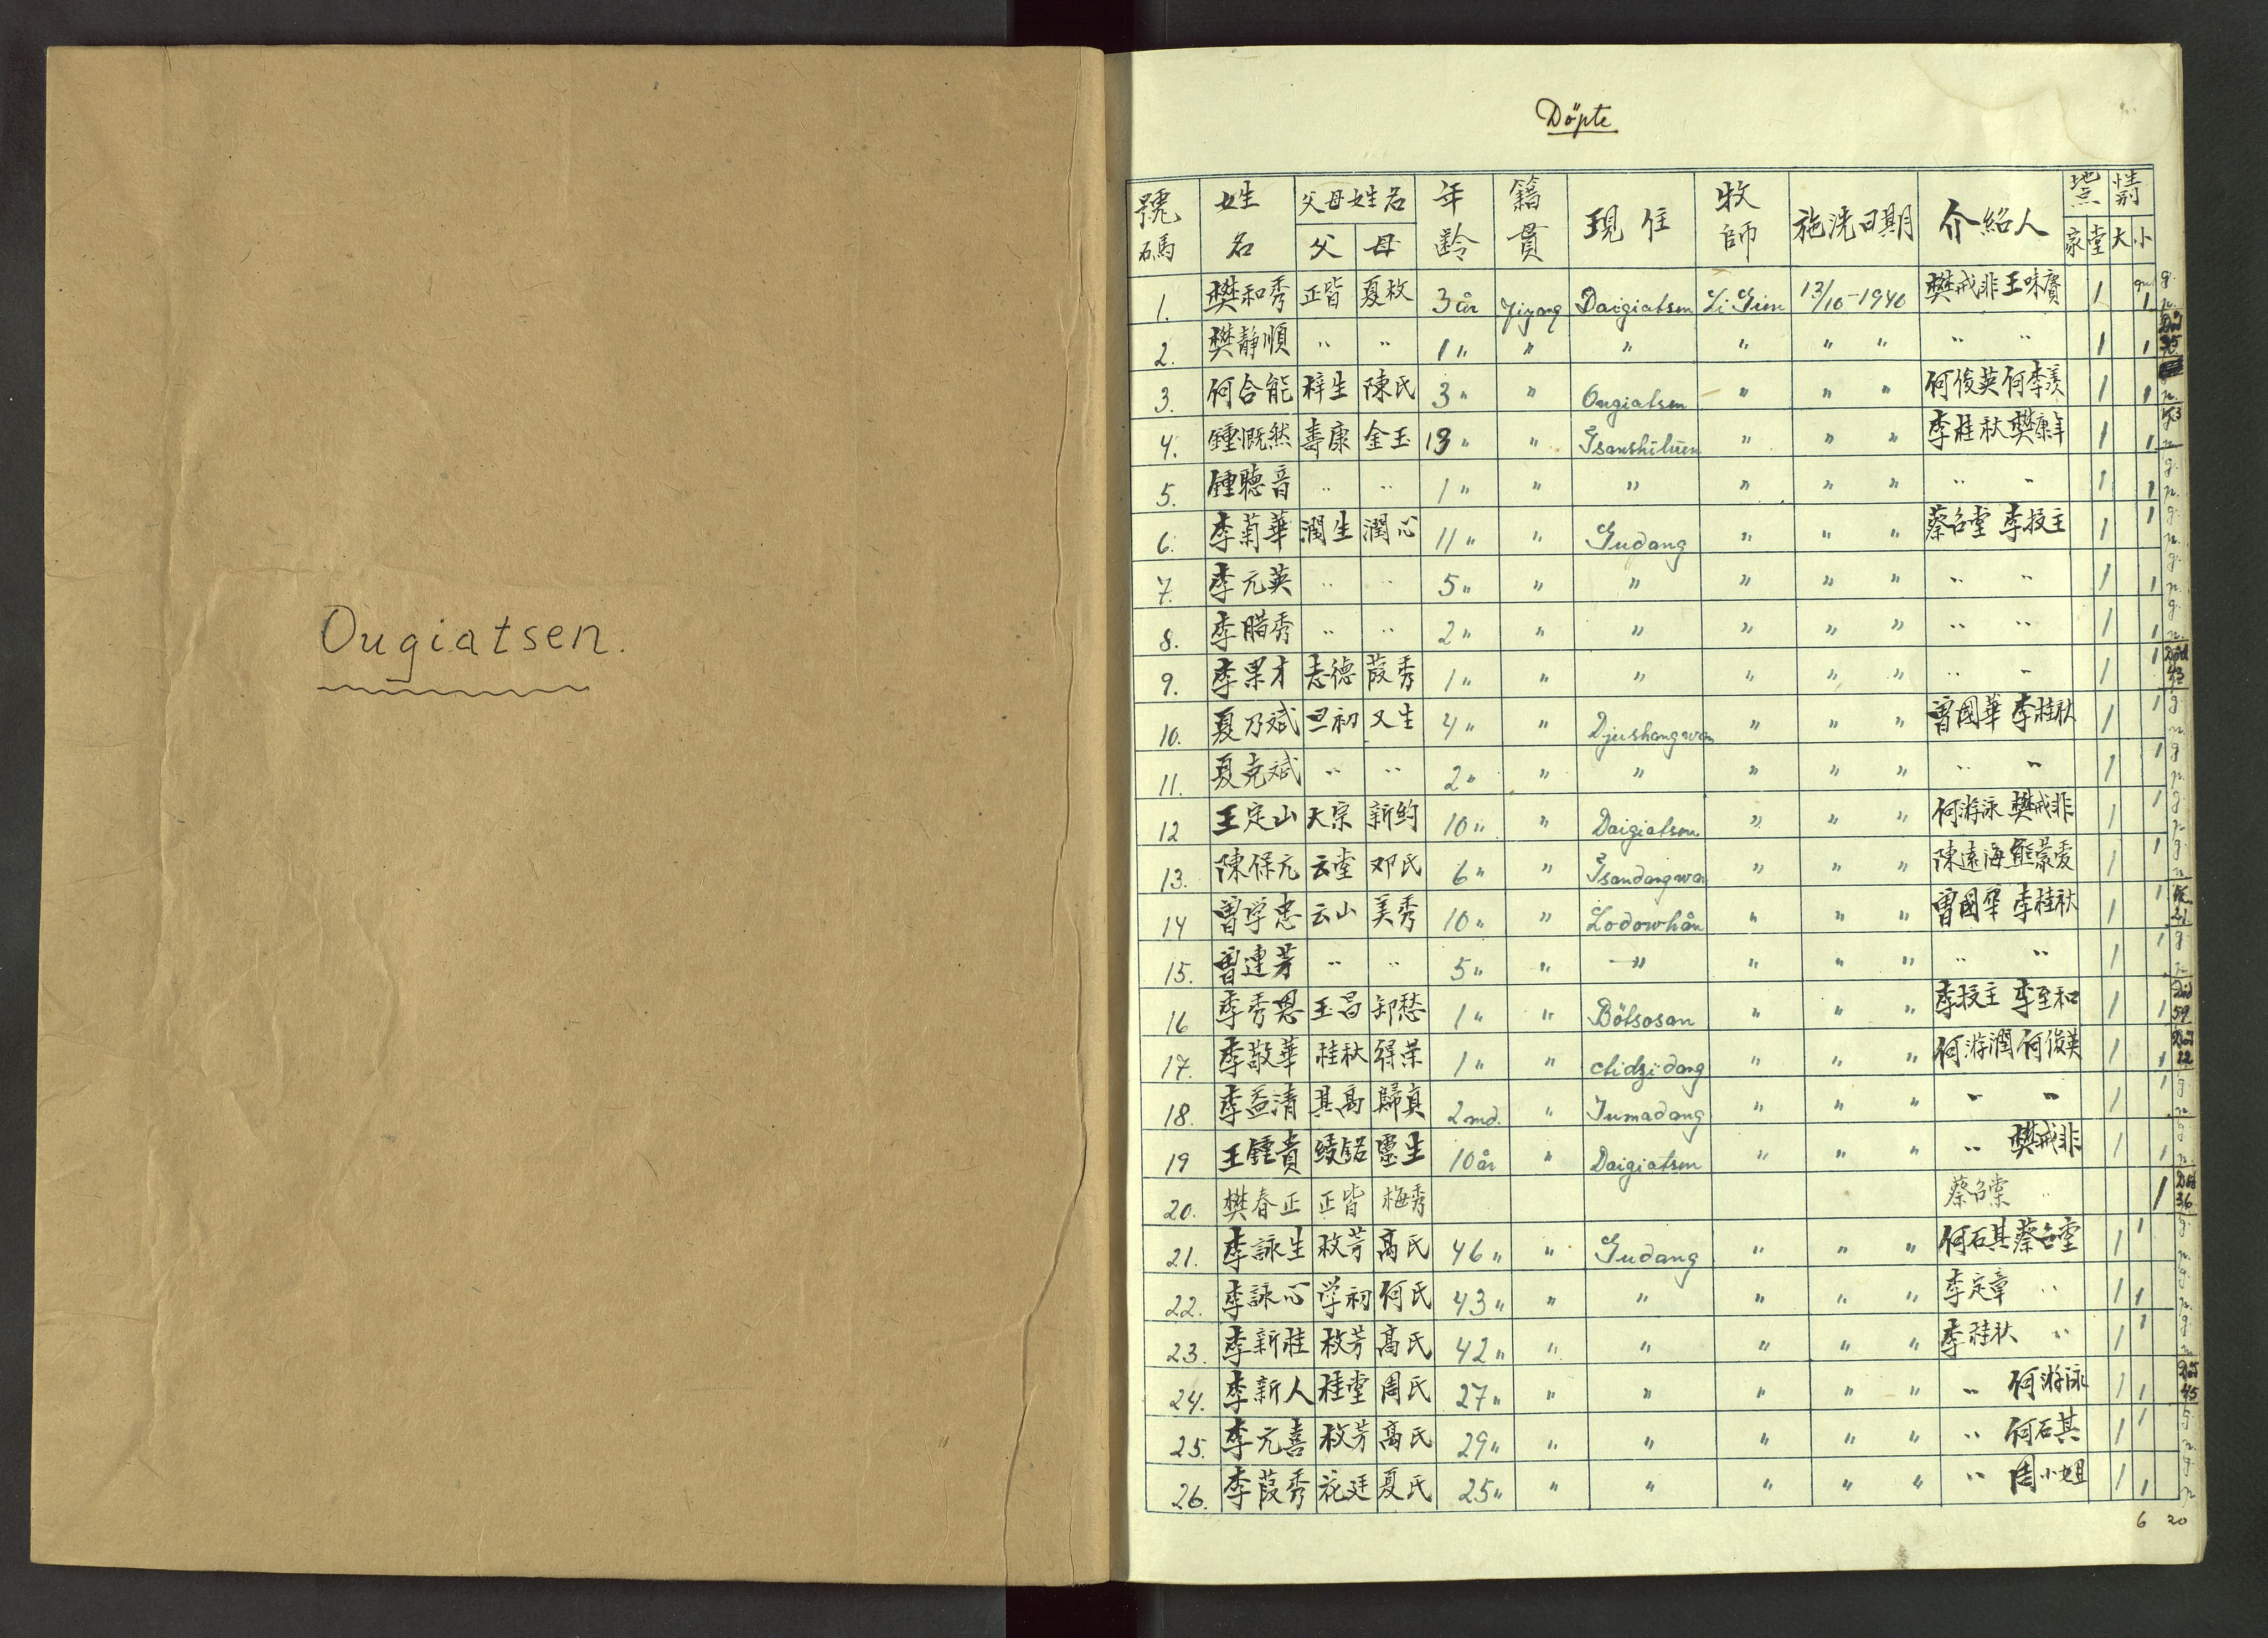 Ougiatsen.
Döpte
號碼 姓名 父母姓名 父 母 年齡 籍貫 現住 牧師 施洗日期 介紹人 地点 家 堂 性別 大 小
1. 樊和秀 正皆 夏枚 3 år Yiyang Daigiatsen Li Gien 13/10-1940 樊戒非 王味賡 1 1
2. 樊静順 〃 〃 1 〃 〃 〃 〃 〃 〃 〃 〃 1 1 Död
3. 何合能 梓生 陳氏 3 〃 〃 Ougiatsen 〃 〃 〃 何俊英 何李羨 1 1
4. 鍾慨然 壽康 金玉 13 〃 〃 〃 〃 〃 李桂秋 1 1
5. 鍾聽音 〃 〃 1 〃 〃 〃 〃 〃 〃 〃 〃 1 1
6. 李菊華 潤生 潤心 11 〃 〃 Gudang 〃 〃 〃 蔡名堂 李投主 1 1
7. 李元英 〃 〃 5 〃 〃 〃 〃 〃 〃 〃 〃 1 1
8. 李腊秀 〃 〃 2 〃 〃 〃 〃 〃 〃 〃 〃 1 1
9. 李果才 志德 葭秀 1 〃 〃 〃 〃 〃 〃 〃 〃 1 1 Död 43
10. 夏乃斌 旦初 又生 4 〃 〃 Djushangwan 〃 〃 〃 曾國華 李桂秋 1 1
11. 夏克斌 〃 〃 2 〃 〃 〃 〃 〃 〃 〃 〃 1 1
12 王定山 天宗 新約 10 〃 〃 Daigiatsen 〃 〃 〃 何游泳 樊戒非 1 1
13. 陳保元 云堂 邓氏 6 〃 〃 Tsandangwan 〃 〃 〃 陳遠海 熊蒙爱 1 1
14 曾学忠 云山 美秀 10 〃 〃 Lodowhån 〃 〃 〃 曾國華 李桂秋 1 1
15. 曾連芳 〃 〃 5 〃 〃 〃 〃 〃 〃 〃 〃 1 1
16 李秀恩 玉昌 卸愁 1 〃 〃 Bötsosan 〃 〃 〃 李投主 李至和 1 1 Död 59
17. 李敬華 桂秋 得荣 1 〃 〃 Chidzidang 〃 〃 〃 何游潤 何俊英 1 1 Död 22
18. 李益清 其高 歸真 2 md. 〃 Tumadang 〃 〃 〃 〃 〃 1 1
19 王鍾貴 綾銘 靈生 10 år 〃 Daigiatsen 〃 〃 〃 〃 樊戒非 1 1
20. 樊春正 正皆 梅秀 蔡名棠 〃 1 Död 36
21. 李詠生 枚芳 高氏 46 〃 〃 Gudang 〃 〃 〃 何石其 蔡名堂 1 1
22. 李詠心 学初 何氏 43 〃 〃 〃 〃 〃 〃 李定章 〃 1 1
23. 李新桂 枚芳 高氏 42 〃 〃 〃 〃 〃 〃 李桂秋 〃 1 1
24. 李新人 桂堂 周氏 27 〃 〃 〃 〃 〃 〃 〃 何游泳 1 1 Död 45
25. 李元喜 枚芳 高氏 29 〃 〃 〃 〃 〃 〃 〃 何石其 1 1
26. 李葭秀 花廷 夏氏 25 〃 〃 〃 〃 〃 〃 〃 周小姐 1 1
6 20